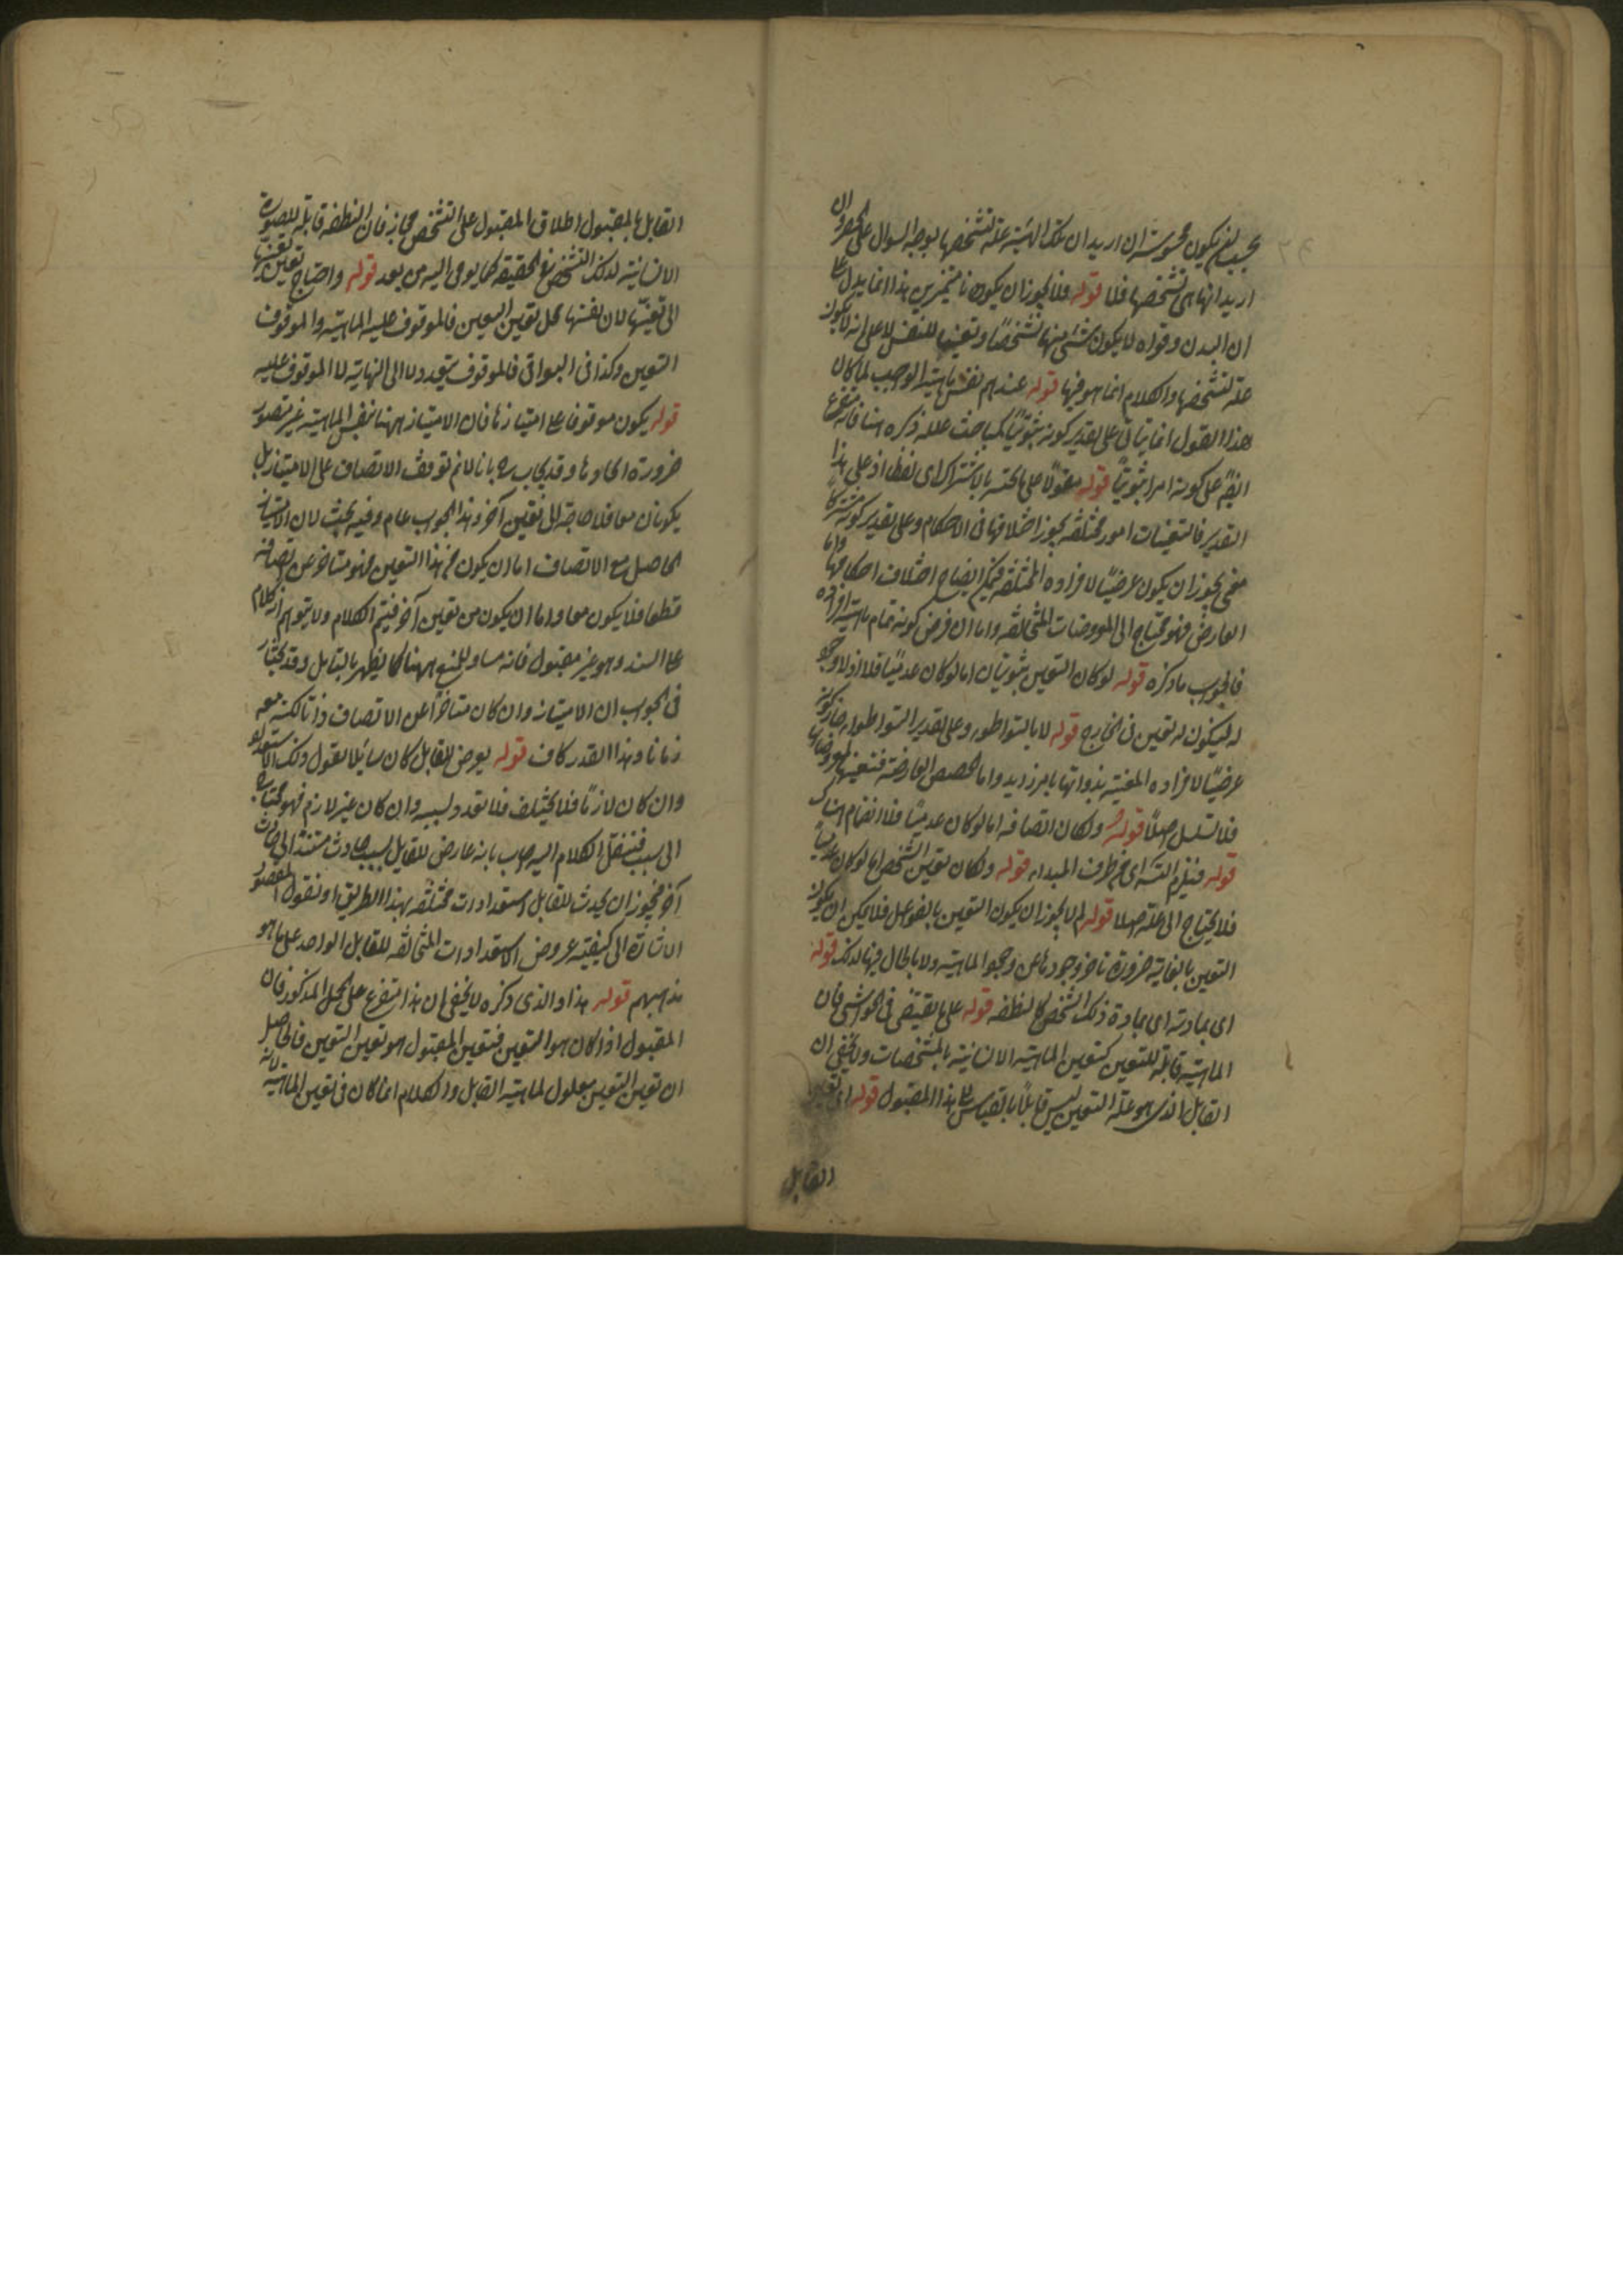 بحسب لم يكون محسوسة ان اريد ان تلك الهيئة علة لتشخصها يوجه السوال على الحصر وان
اريد انها هى تشخصها فلا قوله فلا يجوز ان يكون نا هذا انما يدل على
ان البدن وقواه لا يكون شئ منها تشخصا وتعينا للنفس لا على انه لا يكون
علة لتشخصها والكلام انما هو فيها قوله عندهم نفس ماهية الواجب لما كان
هذا القول انما يتأتى على تقدير كونه ثبوتيا ذكره هنا فانه متفرع
ايضا على كونه امرا ثبوتيا قوله مقولا على ما تحته بالاشتراك اى لفظا اذ على هذا
التقدير فالتعينات امور مختلفة يجوز اختلافها فى الاحكام وعلى تقدير كونه مشتركا
معنى يجوز ان يكون عرضيا لافراده المختلفة فيجوز ايضا اختلاف احكامها واما
العارض فهو محتاج الى المعروضات المتخالفة واما ان فرض كونه تمام ماهية افراده
فالجواب ما ذكره قوله لو كان التعين ثبوتيا اما لو كان عدميا فلا اذ لا وجود
له ليكون له تعين فى الخارج قوله لا بالتواطؤ وعلى تقدير التواطؤ جاز كونه
عرضيا لافراده المتعينة بذواتها لا بامر زايد واما الحصص العارضة فتعينها بمعروضاتها
فلا تسلسل اصلا قوله ولكان اتصافه اما لو كان عدميا فلا انضمام هناك
قوله فيلزم التس اى من طرف المبداء قوله ولكان تعين الشخص اما لو كان عدميا
فلا يحتاج الى علة اصلا قوله لم لا يجوز ان يكون التعين بالفواعل فلا يمكن ان يكون
التعين بالغاية ضرورة تاخر وجودها عن وجود الماهية ولا بالحال فيها لذلك قوله
اى بمادته اى بمادة ذلك الشخص كالنطفة قوله على ما يقتضى فى الحواشى فان
الماهية قابلة للتعين كتعين الماهية الانسانية بالمشخصات ولا يخفى ان
القابل الذى هو علة التعين ليس قابلا بالقياس الى هذا المقبول قوله اى تعين
القابل
القابل بالمقبول اطلاق المقبول على التشخص مجاز فان النطفة قابلة للصورة
الانسانية لذلك التشخص فى الحقيقة كما يومى اليه من بعد قوله واحتاج تعين تعينها
الى تعينها لان نفسها محل تعين التعين فالموقوف عليه الماهية والموقوف
التعين وكذا فى البواقى فالموقوف يتعدد لا الى النهاية لا الموقوف عليه
قوله يكون موقوفا على امتيازها فان الامتياز ههنا بنفس الماهية غير متصور
ضرورة اتحادها وقد يجاب ره بانا لا نم توقف الاتصاف على الامتياز بل
يكونان معا فلا حاجة الى تعين آخر وهذا الجواب عام وفيه بحث لان الامتياز
الحاصل مع الاتصاف اما ان يكون من هذا التعين فهو متاخر عن اتصافه
قطعا فلا يكون معا واما ان يكون من تعين آخر فيتم الكلام ولا يتوهم ان كلام
على السند وهو غير مقبول فانه مساو للمنع ههنا كما يظهر بالتامل وقد يختار
فى الجواب ان الامتياز وان كان متاخرا عن الاتصاف ذاتا لكنه معه
زمانا وهذا القدر كاف قوله يعرض للقابل كان سايلا يقول ذلك الاستعداد
وان كان لازما فلا يختلف فلا تعدد لسببه وان كان غير لازم فهو محتاج
الى سبب فننقل الكلام اليه جاب بانه عارض للقابل بسبب حادث مستند الى حادث
آخر فيجوز ان يحدث للقابل استعدادات مختلفة بهذا الطريق او نقول المقصود
الاشارة الى كيفية عروض الاستعدادات المتخالفة للقابل الواحد على ما هو
مذهبهم قوله هذا والذى ذكره لا يخفى ان هذا متفرع على الحمل المذكور فان
المقبول اذا كان هو التعين فتعين المقبول هو تعين التعين فالحاصل
ان تعين التعين معلول لماهية القابل والكلام انما كان فى تعين الماهية لانه